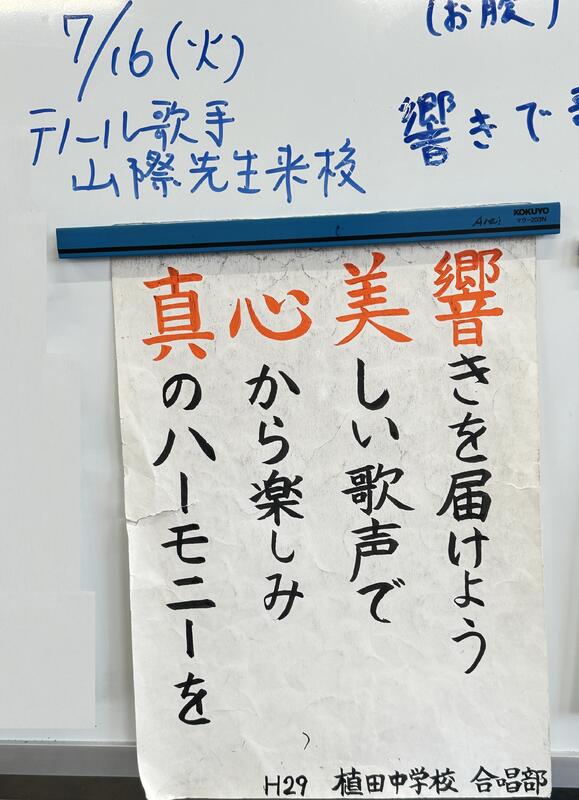 7/16(火)
テノール歌手
山際先生来校
(お腹)
響きで
Arei
KOKUYO
マク-203N
響きを届けよう
美しい歌声で
心から楽しみ
真のハーモニーを
H29 植田中学校 合唱部